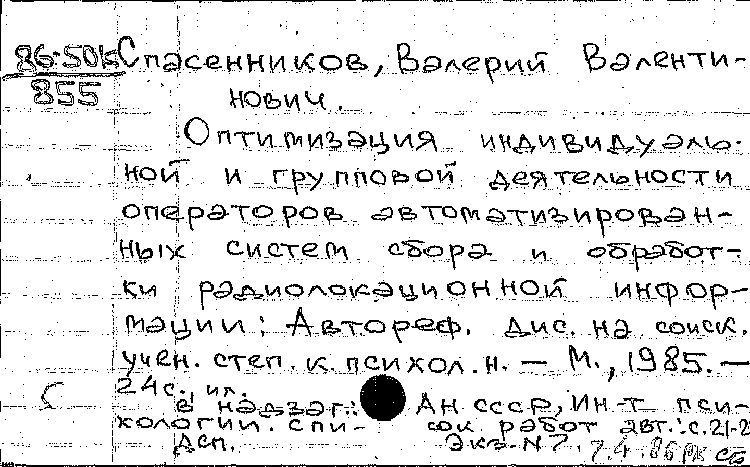 86-50k Спасенников, Валерий Валенти-
855 нович.
Оптимизация индивидуаль-
ной и групповой деятельности
операторов автоматизирован-
ных систем сбора и обработ-
ки радиолокационной инфор-
мации: Автореф. дис. на соиск.
учен. степ. к. психол. н. — М., 1985. —
24с., ил.
В надзаг.: АН СССР, Ин-т пси-
хологии. Спи- сок работ авт.: с. 21-2
Дсп. Экз. N 7.